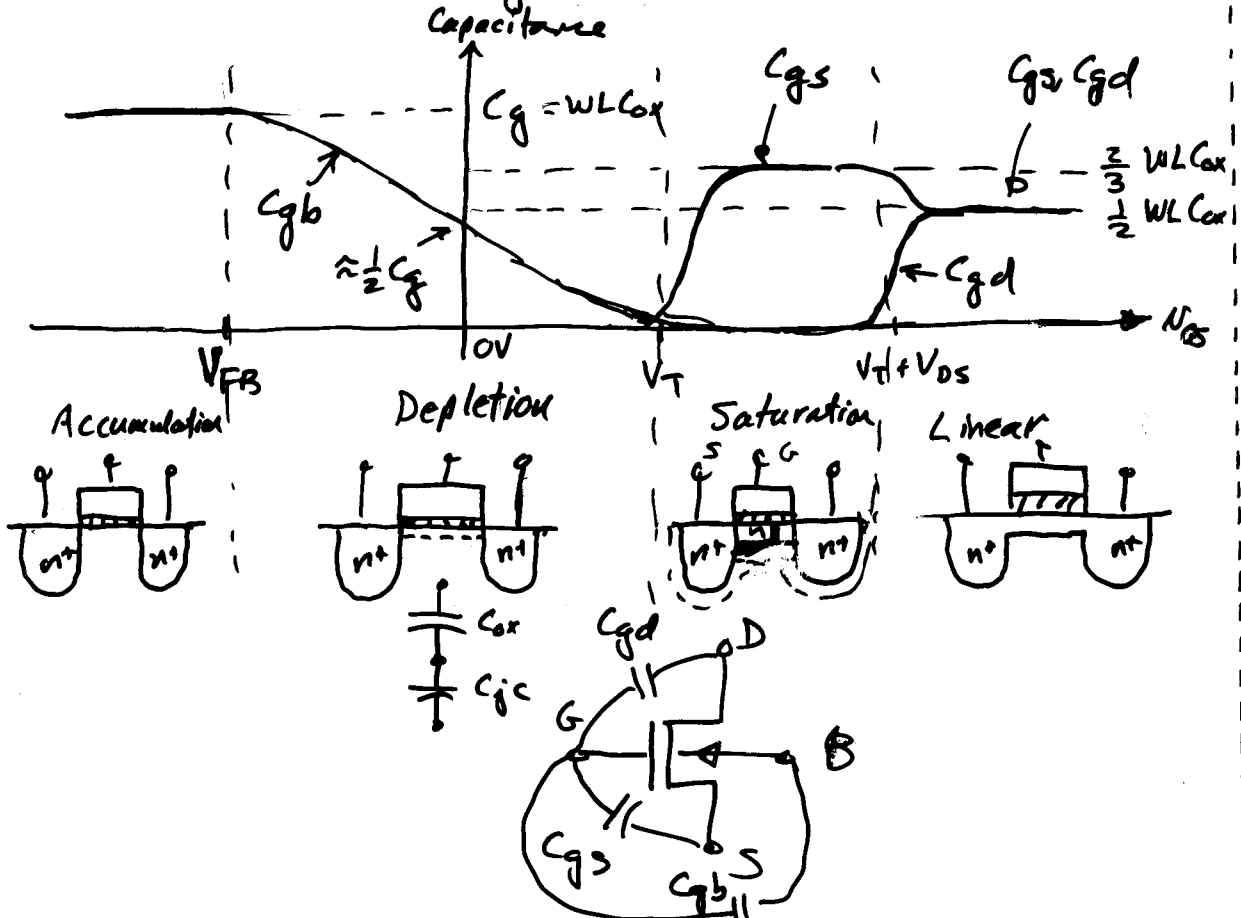 Capacitance
Cg = WLCox
Cgs
Cgs, Cgd
2/3 WLCox
1/2 WLCox
Cgb
≈ 1/2 Cg
Cgd
VFB
0V
VT
VT + VDS
Accumulation
Depletion
Saturation
Linear
S
G
n+
n+
n+
n+
n+
n
n+
n+
n+
Cox
Cjc
Cgd
D
G
B
Cgs
S
Cgb